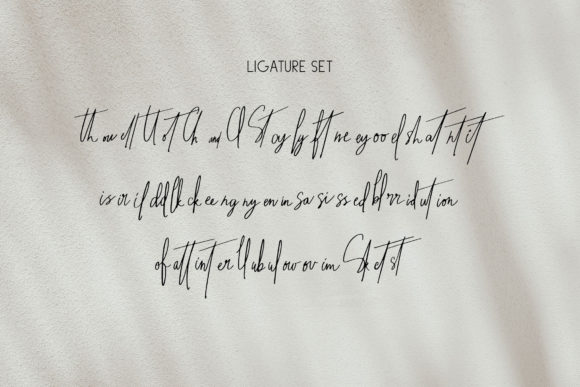 LIGATURE SET
th ow ell tt ot Ch and Cl St ay ly ft ne ey oo el sh at nt it
is ir il dd ck ck ee ng ny en in sa si ss ed bl rr id ut ion
of att int er ll ub ul ow ov im Sk et st